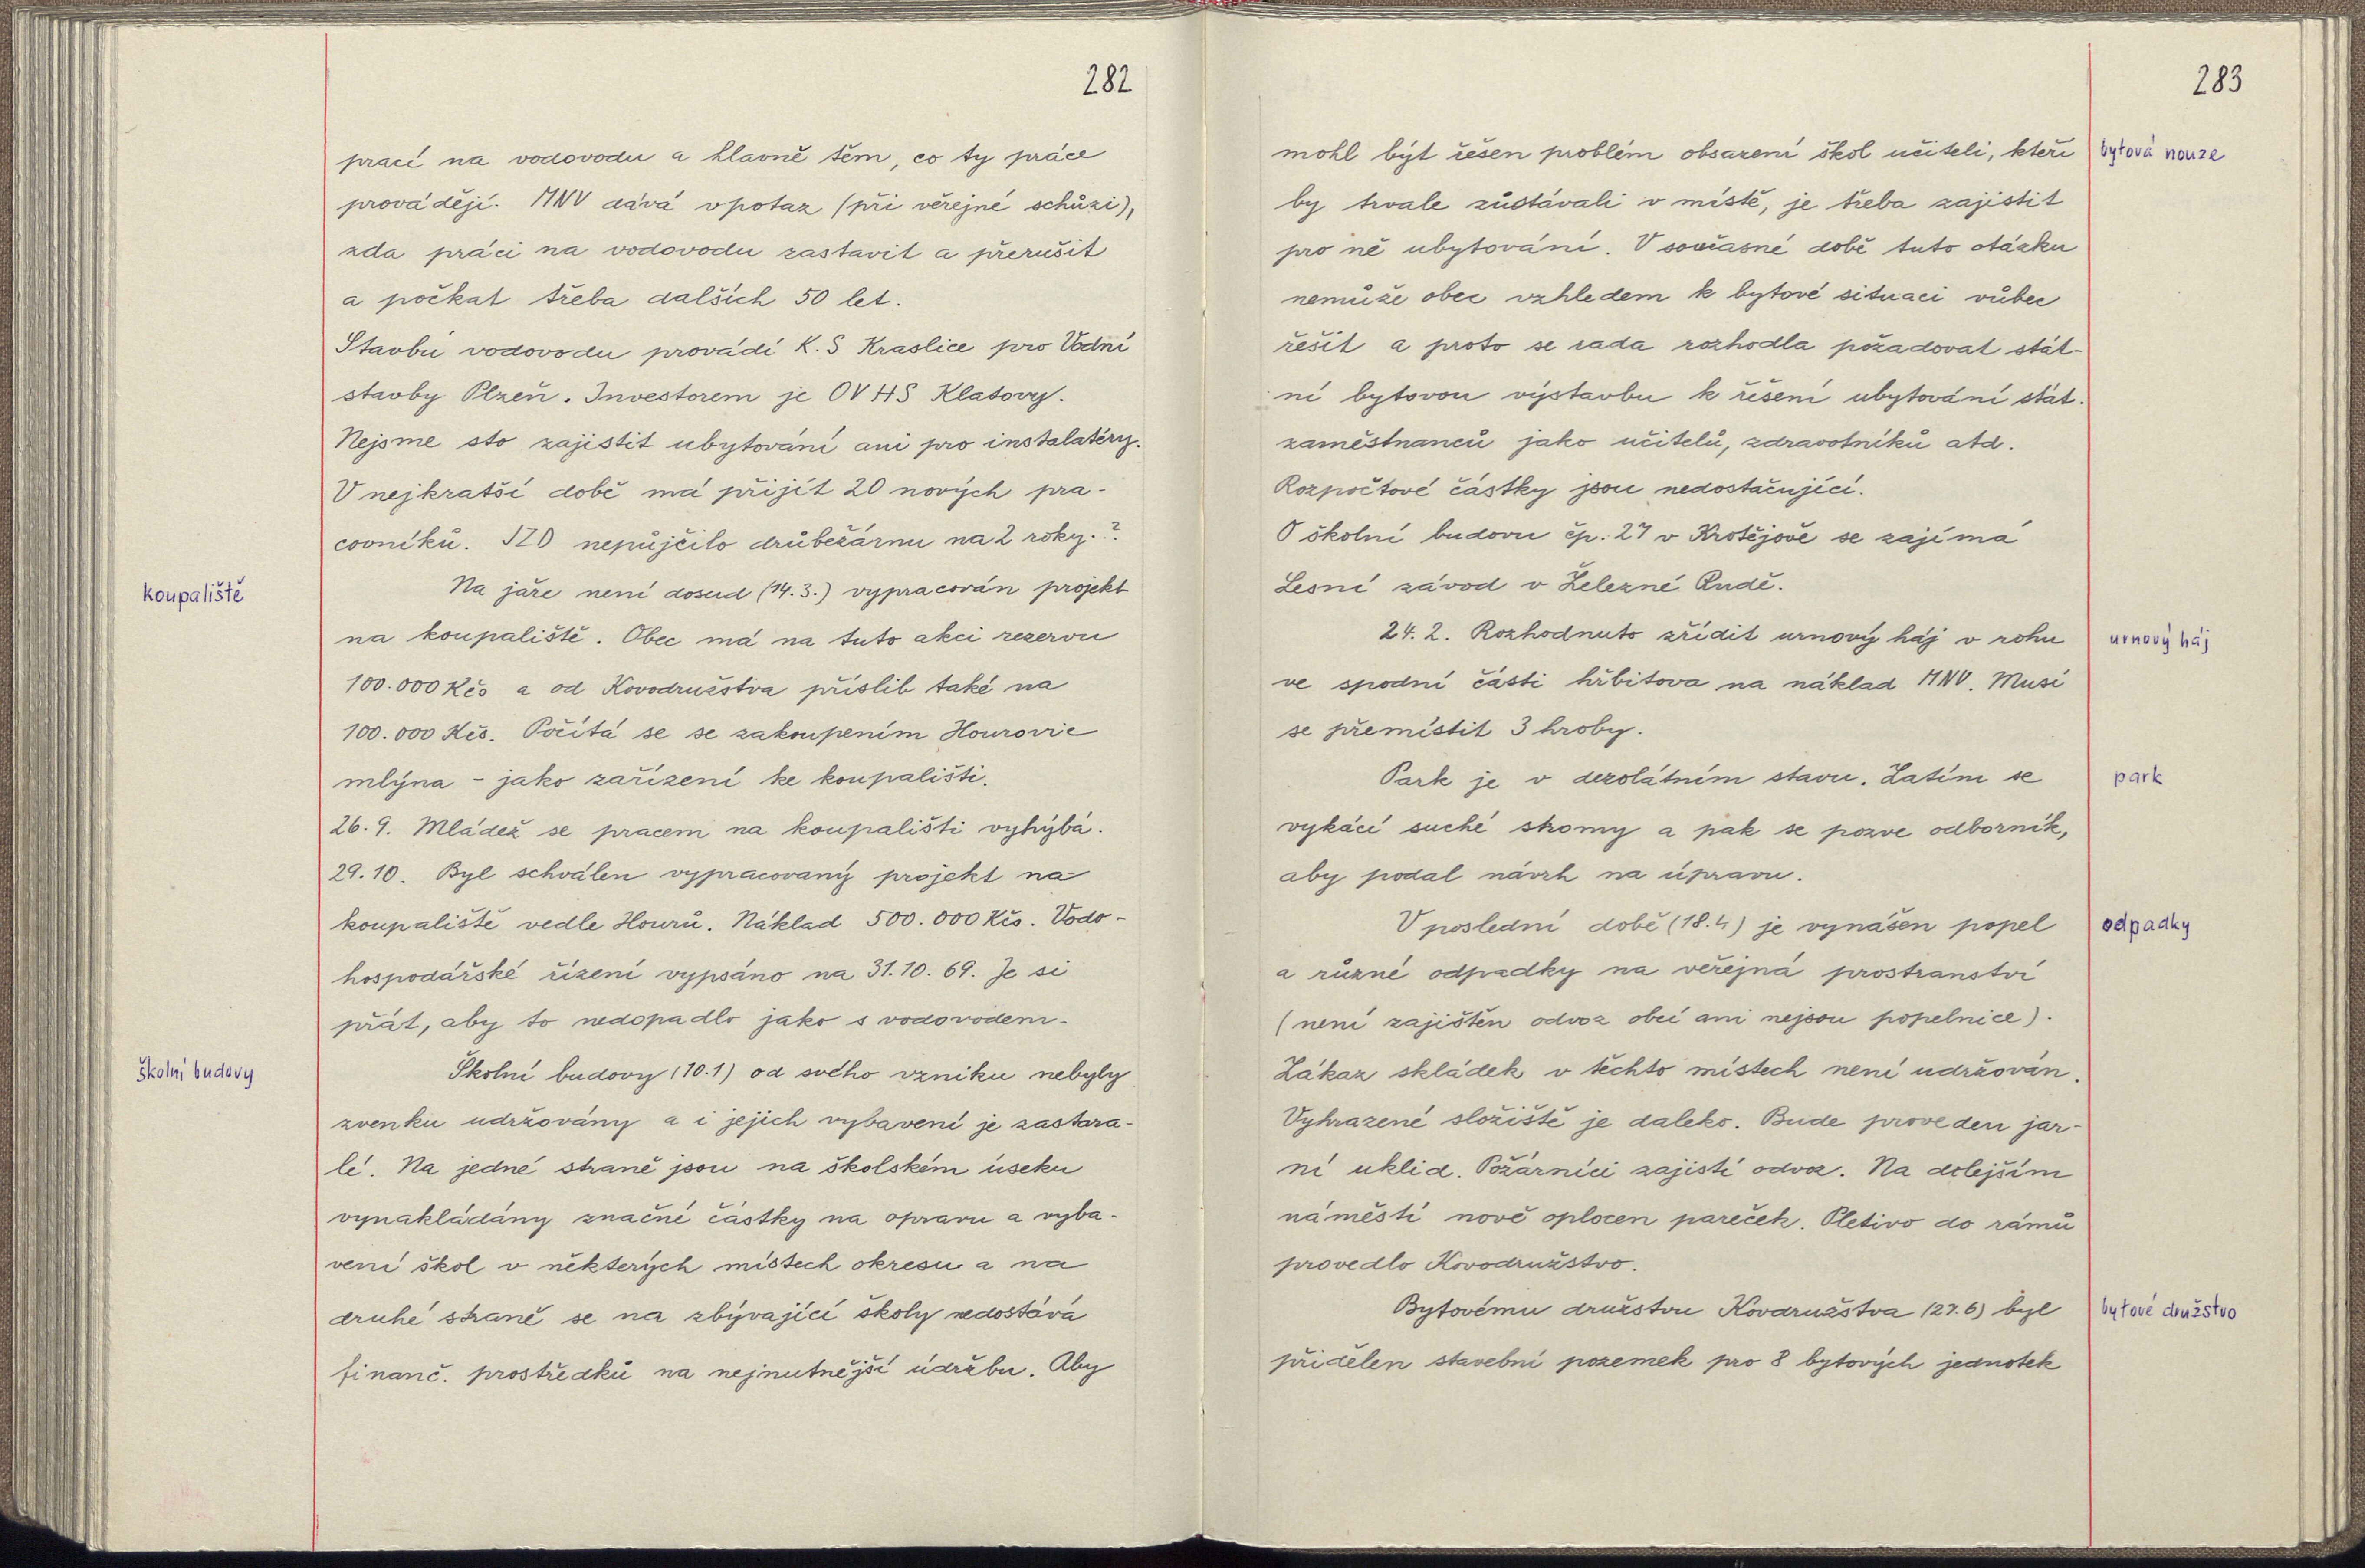 282
prací na vodovodu a hlavně těm, co ty práce
provádějí. MNV dává v potaz (při věřejné schůzi),
zda práci na vodovodu zastavit a přerušit
a počkat třeba dalších 50 let.
Stavbu vodovodu provádí K.S Kraslice pro Vodní
stavby Plzeň. Investorem je OVHS Klatovy.
Nejsme sto zajistit ubytování ani pro instalatéry.
V nejkratší době má přijít 20 nových pra-
covníků. JZD nepůjčilo drůbežárnu na 2 roky.?
koupaliště
Na jaře není dosud (14.3.) vypracován projekt
na koupaliště. Obec má na tuto akci rezervu
100.000 Kčs a od Kovodružstva příslib také na
100.000 Kčs. Počítá se se zakoupením Hourovic
mlýna - jako zařízení ke koupališti.
26.9. Mládež se pracem na koupališti vyhýbá.
29.10. Byl schválen vypracovaný projekt na
koupaliště vedle Hourů. Náklad 500.000 Kčs. Vodo-
hospodářské řízení vypsáno na 31.10.69. Je si
přát, aby to nedopadlo jako s vodovodem.
školní budovy
Školní budovy (10.1) od svého vzniku nebyly
zvenku udržovány a i jejich vybavení je zastara-
lé. Na jedné straně jsou na školském úseku
vynakládány značné částky na opravu a vyba-
vení škol v některých místech okresu a na
druhé straně se na zbývající školy nedostává
finanč. prostředků na nejnutnější údržbu. Aby
283
mohl být řešen problém obsazení škol učiteli, kteří
bytová nouze
by trvale zůstávali v místě, je třeba zajistit
pro ně ubytování. V současné době tuto otázku
nemůže obec vzhledem k bytové situaci vůbec
řešit a proto se rada rozhodla požadovat stát-
ní bytovou výstavbu k řešení ubytování stát.
zaměstnanců jako učitelů, zdravotníků atd.
Rozpočtové částky jsou nedostačující.
O školní budovu čp. 27 v Krotějově se zajímá
Lesní závod v Železné Rudě.
24.2. Rozhodnuto zřídit urnový háj v rohu
urnový háj
ve spodní části hřbitova na náklad MNV. Musí
se přemístit 3 hroby.
Park je v dezolátním stavu. Zatím se
park
vykácí suché stromy a pak se pozve odborník,
aby podal návrh na úpravu.
V poslední době (18.4) je vynášen popel
odpadky
a různé odpadky na veřejná prostranství
(není zajištěn odvoz obcí ani nejsou popelnice).
Zákaz skládek v těchto místech není udržován.
Vyhrazené složiště je daleko. Bude proveden jar-
ní uklid. Požárníci zajistí odvoz. Na dolejším
náměstí nově oplocen pareček. Pletivo do rámů
provedlo Kovodružstvo.
Bytovému družstvu Kovdružstva (27.6) byl
bytové družstvo
přidělen stavební pozemek pro 8 bytových jednotek